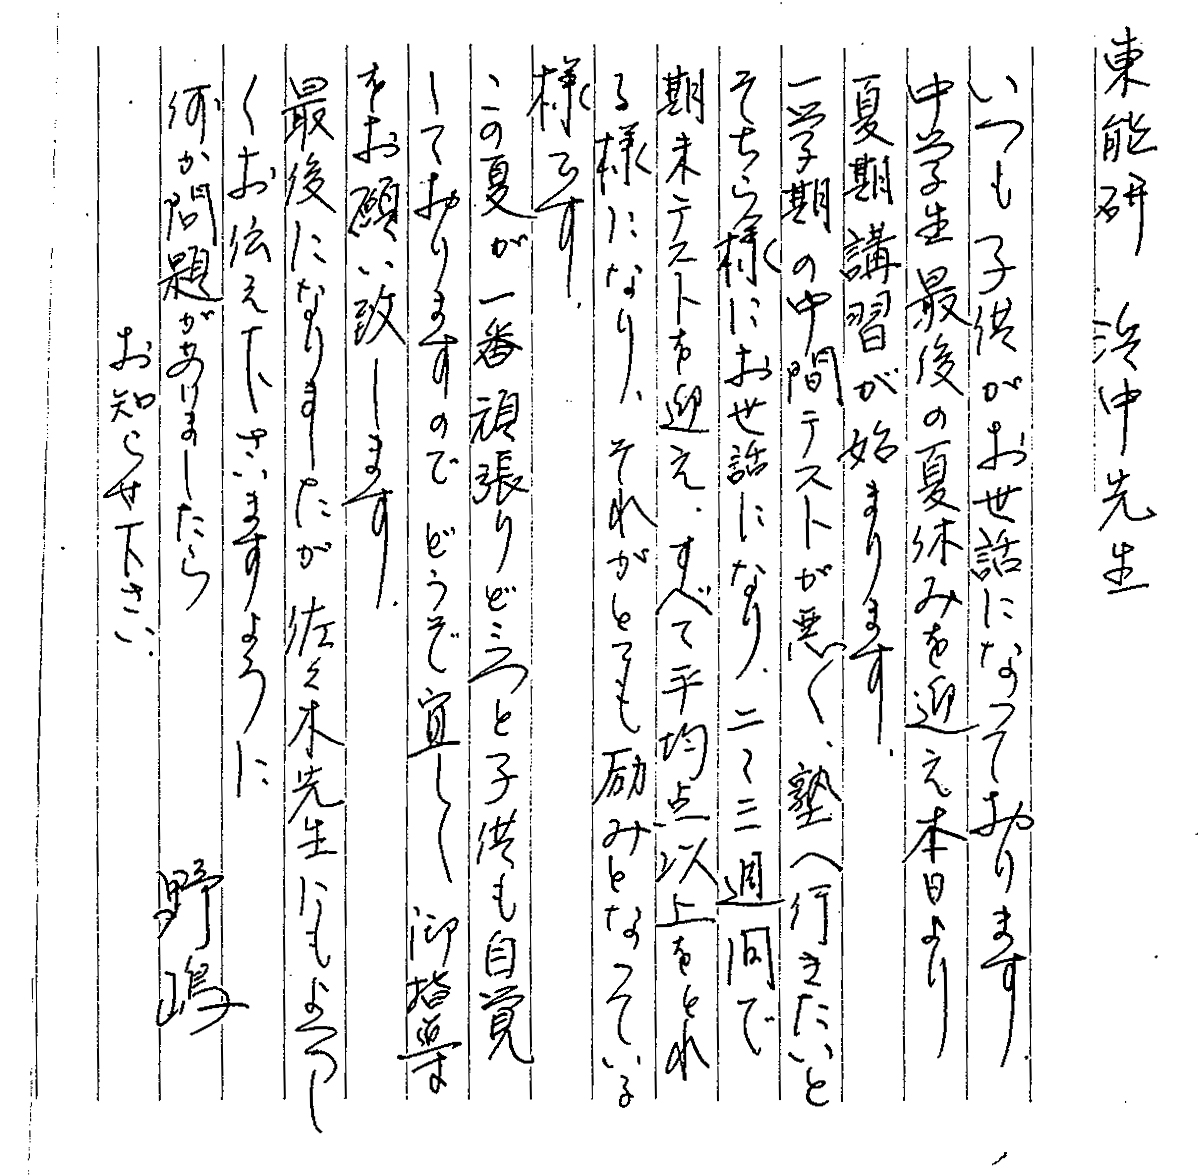 東能研 浜中先生
いつも子供がお世話になっております.
中学生最後の夏休みを迎え本日より
夏期講習が始まります.
一学期の中間テストが悪く、塾へ行きたいと
そちら様にお世話になり、二〜三週間で
期末テストを迎え、すべて平均点以上をとれ
る様になり、それがとても励みとなっている
様です.
この夏が一番頑張りどころと子供も自覚
しておりますので どうぞ宜しく 御指導
をお願い致します.
最後になりましたが 佐々木先生にもよろし
くお伝え下さいますように
何か問題がありましたら 野嶋
お知らせ下さい.